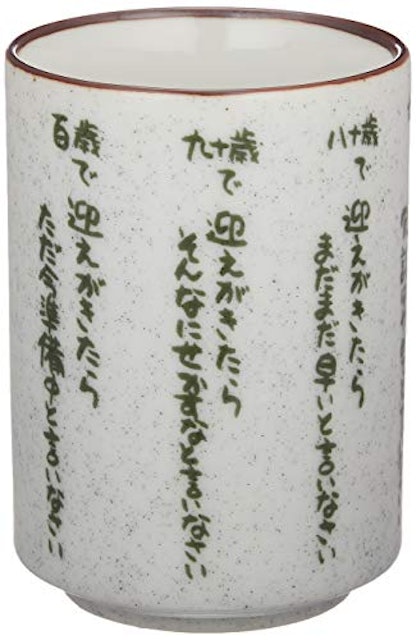 八十歳で迎えがきたら
まだまだ早いと言いなさい
九十歳で迎えがきたら
そんなにせかすなと言いなさい
百歳で迎えがきたら
ただ今準備中と言いなさい